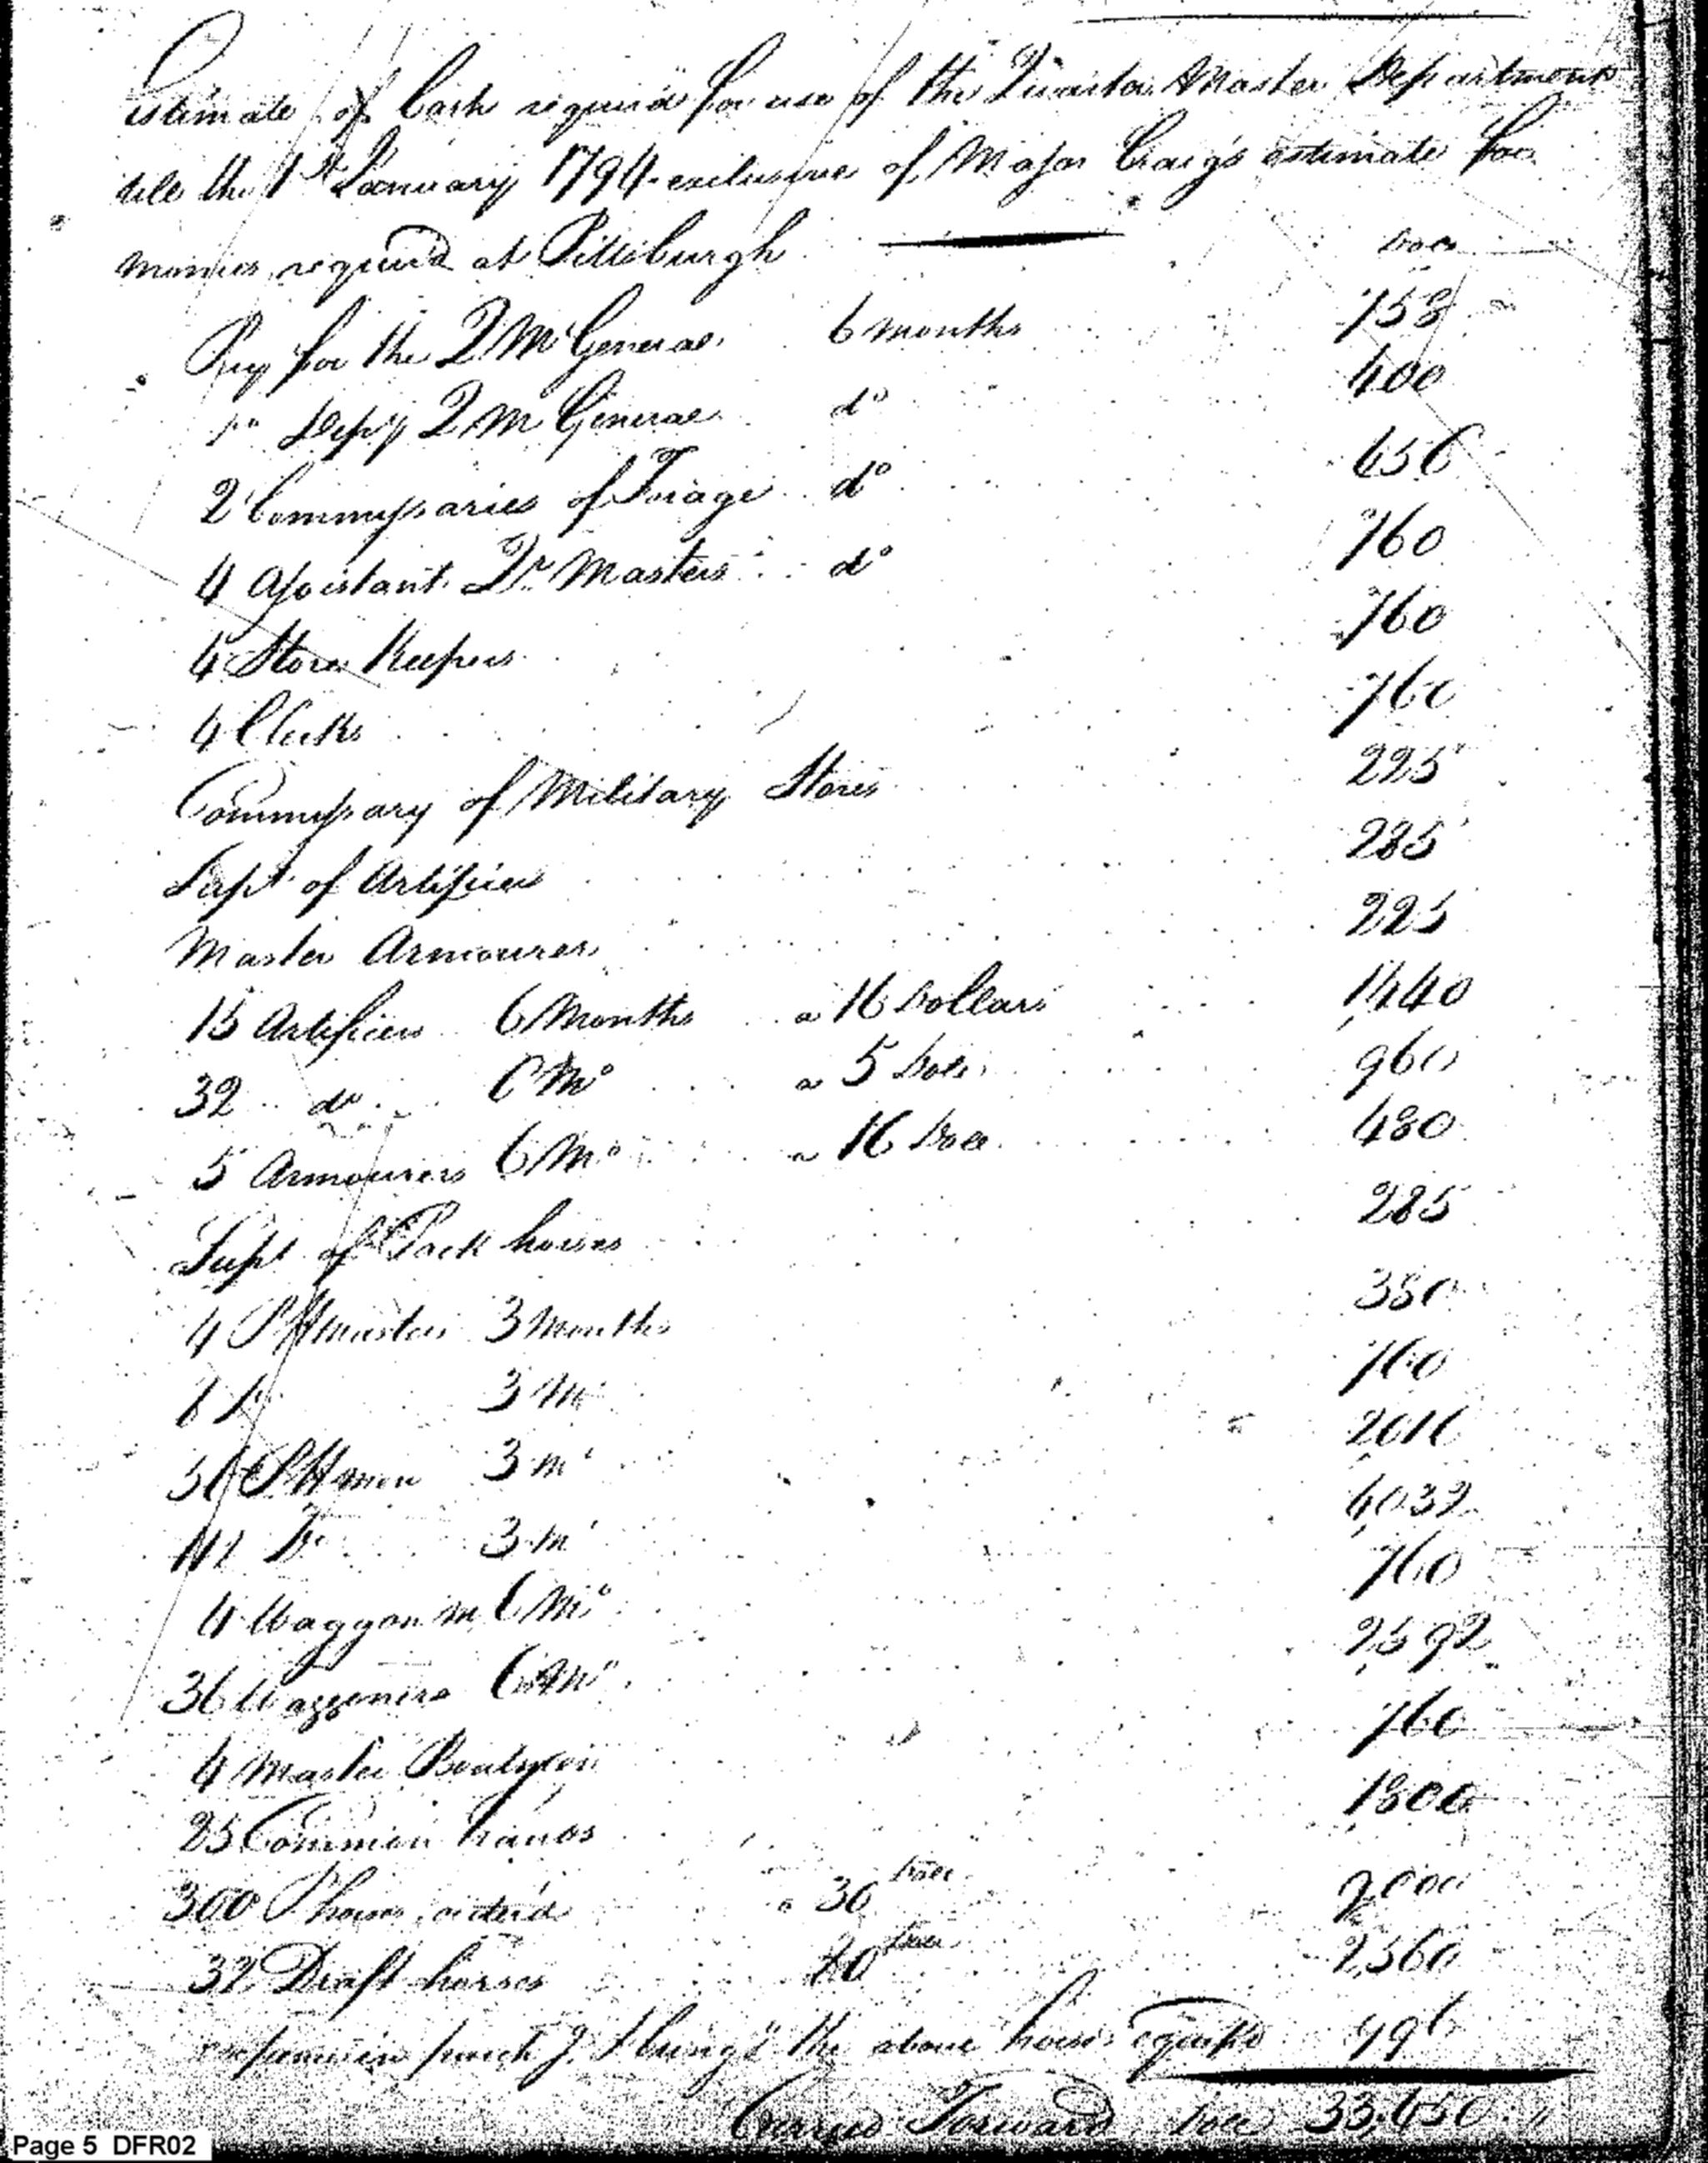 Estimate of Cash requir'd for use of the Quarter Master Department
till the 1st January 1794 exclusive of Major Craig's estimate for
monies requir'd at Pittsburgh
Dolls
Pay for the Q M General 6 months 753
Depy Q M General do 400
2 Commissaries of Forage do 456
4 Assistant Qr Masters do 760
4 Store Keepers 760
4 Clerks 760
Commissary of Military Stores 225
Supt of Artificers 285
Master Armourer 225
15 Artificers 6 Months a 16 Dollars 1440
32 do 6 Mo a 5 Dolls 960
5 Armourers 6 Mo a 16 Dolls 480
Supt of Pack horses 285
4 P H Masters 3 Months 380
8 Do 3 Mo 760
56 P H men 3 mo 2016
112 Do 3 mo 4032
4 Waggon m 6 Mo 760
36 Waggoners 6 Mo 2592
4 Master Boatmen 760
25 Common hands 1800
300 P horses order'd a 30 Dolls 9000
32 Draft horses 80 Dolls 2560
the above horses
Carried Forward Dolls 33,450
Page 5 DFR02